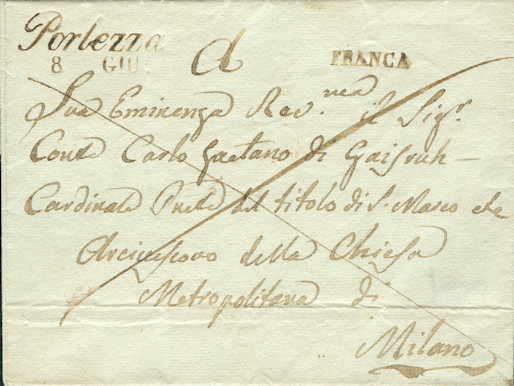 Porlezza
8 GIU. A FRANCA
Sua Eminenza Rev.ma il Sigr.
Conte Carlo Gaetano di Gaisruk
Cardinale Prete del titolo di S. Marco etc
Arcivescovo della Chiesa
Metropolitana di
Milano